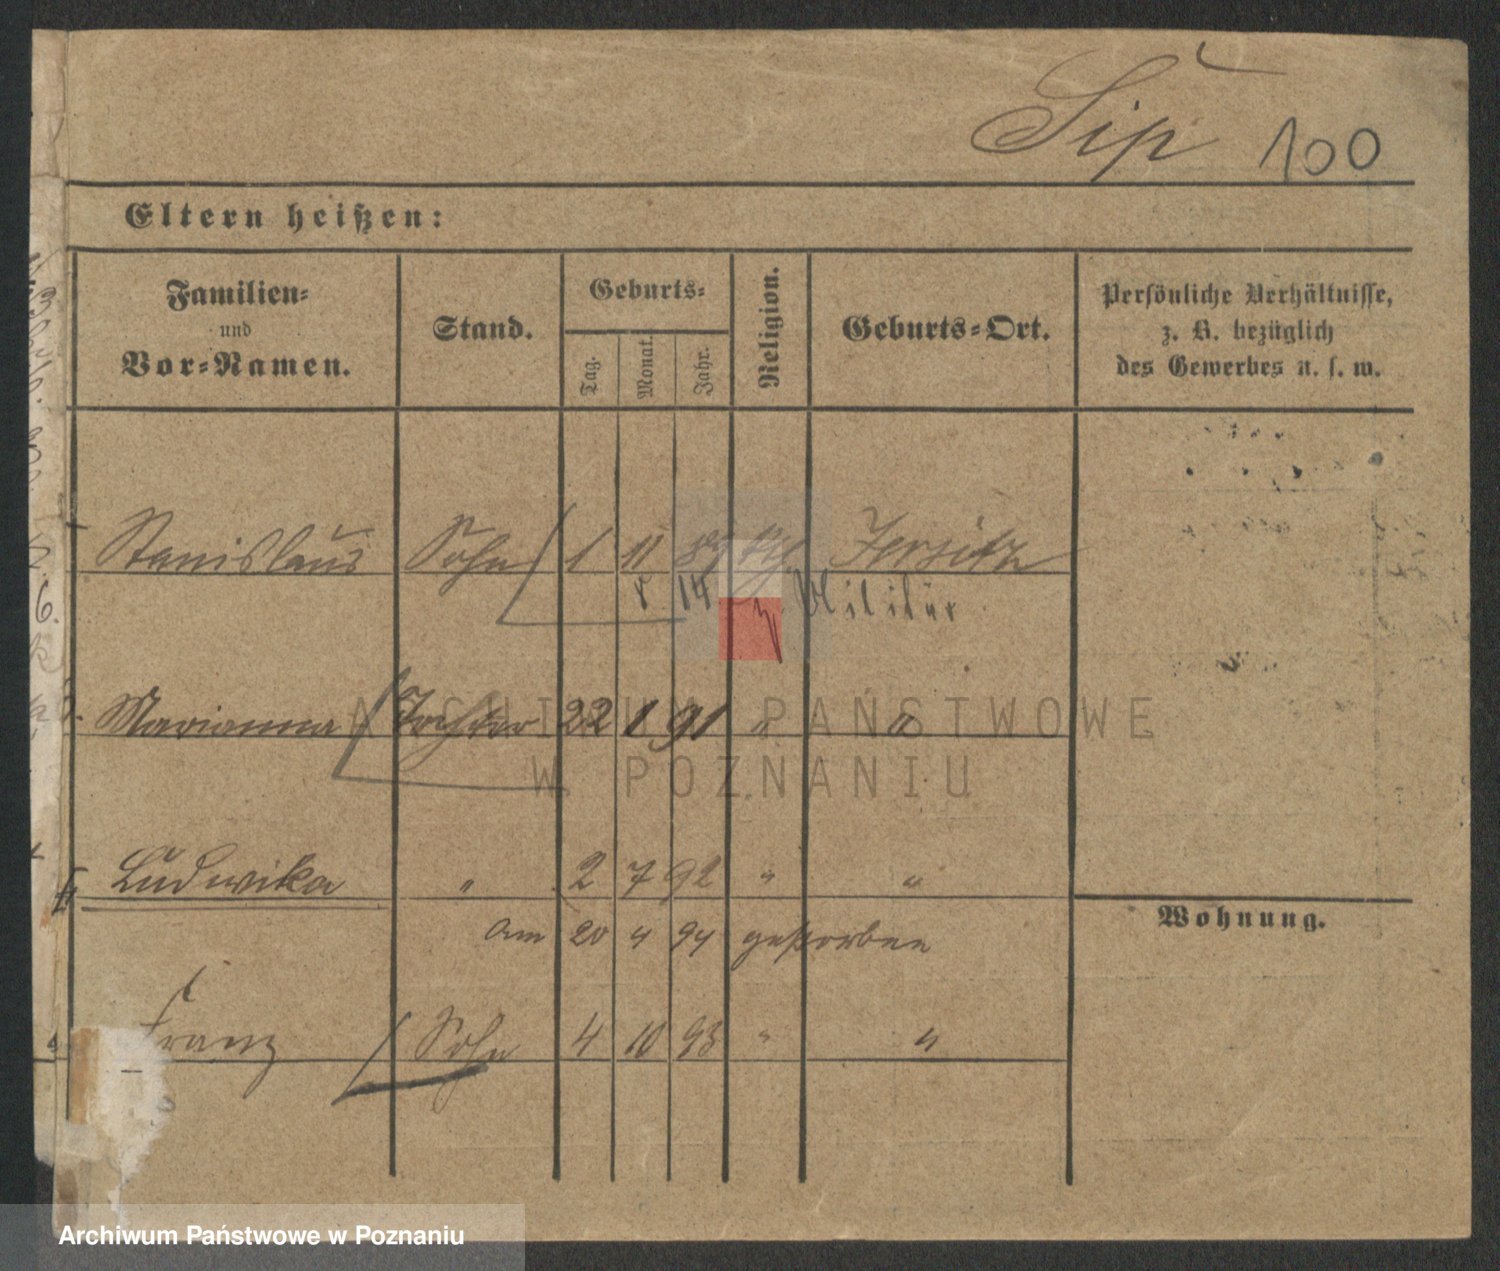 Sip 100
Eltern heißen:
Familien-
und
Vor-Namen.
Stand.
Geburts-
Tag.
Monat.
Jahr.
Religion.
Geburts-Ort.
Persönliche Verhältnisse,
z. B. bezüglich
des Gewerbes u. s. w.
Stanislaus Sohn 1 11 89 Jersitz
14 z. Militär
Marianna Tochter 22 1 91 " "
Ludwika " 2 7 92 " "
am 20 4 94 gestorben
Wohnung.
Franz Sohn 4 10 93 " "
ARCHIWUM PAŃSTWOWE
W POZNANIU
Archiwum Państwowe w Poznaniu